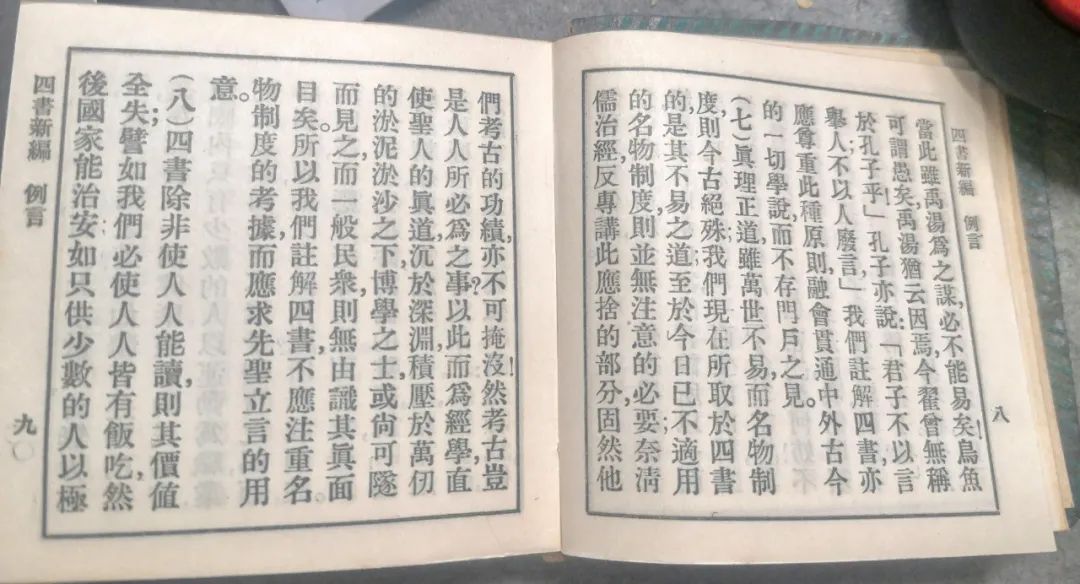 四書新編 例言
八
當此雖禹湯爲之謀,必不能易矣!鳥魚
可謂愚矣,禹湯猶云因焉,今翟曾無稱
於孔子乎!」孔子亦說:「君子不以言
舉人,不以人廢言」我們註解四書,亦
應尊重此種原則,融會貫通中外古今
的一切學說,而不存門戶之見。
(七)眞理正道,雖萬世不易,而名物制
度,則今古絕殊,我們現在所取於四書
的,是其不易之道;至於今日已不適用
的名物制度,則並無注意的必要;奈淸
儒治經,反專講此應捨的部分,固然他
們考古的功績,亦不可掩沒!然考古,豈
是人人所必爲之事?以此而爲經學,直
使聖人的眞道,沉於深淵,積壓於萬仞
的淤泥淤沙之下,博學之士,或尙可隧
而見之,而一般民衆,則無由識其眞面
目矣。所以我們註解四書,不應注重名
物制度的考據,而應求先聖立言的用
意。
(八)四書除非使人人能讀,則其價值
全失;譬如我們必使人人皆有飯吃,然
後國家能治安;如只供少數的人以極
四書新編 例言
九